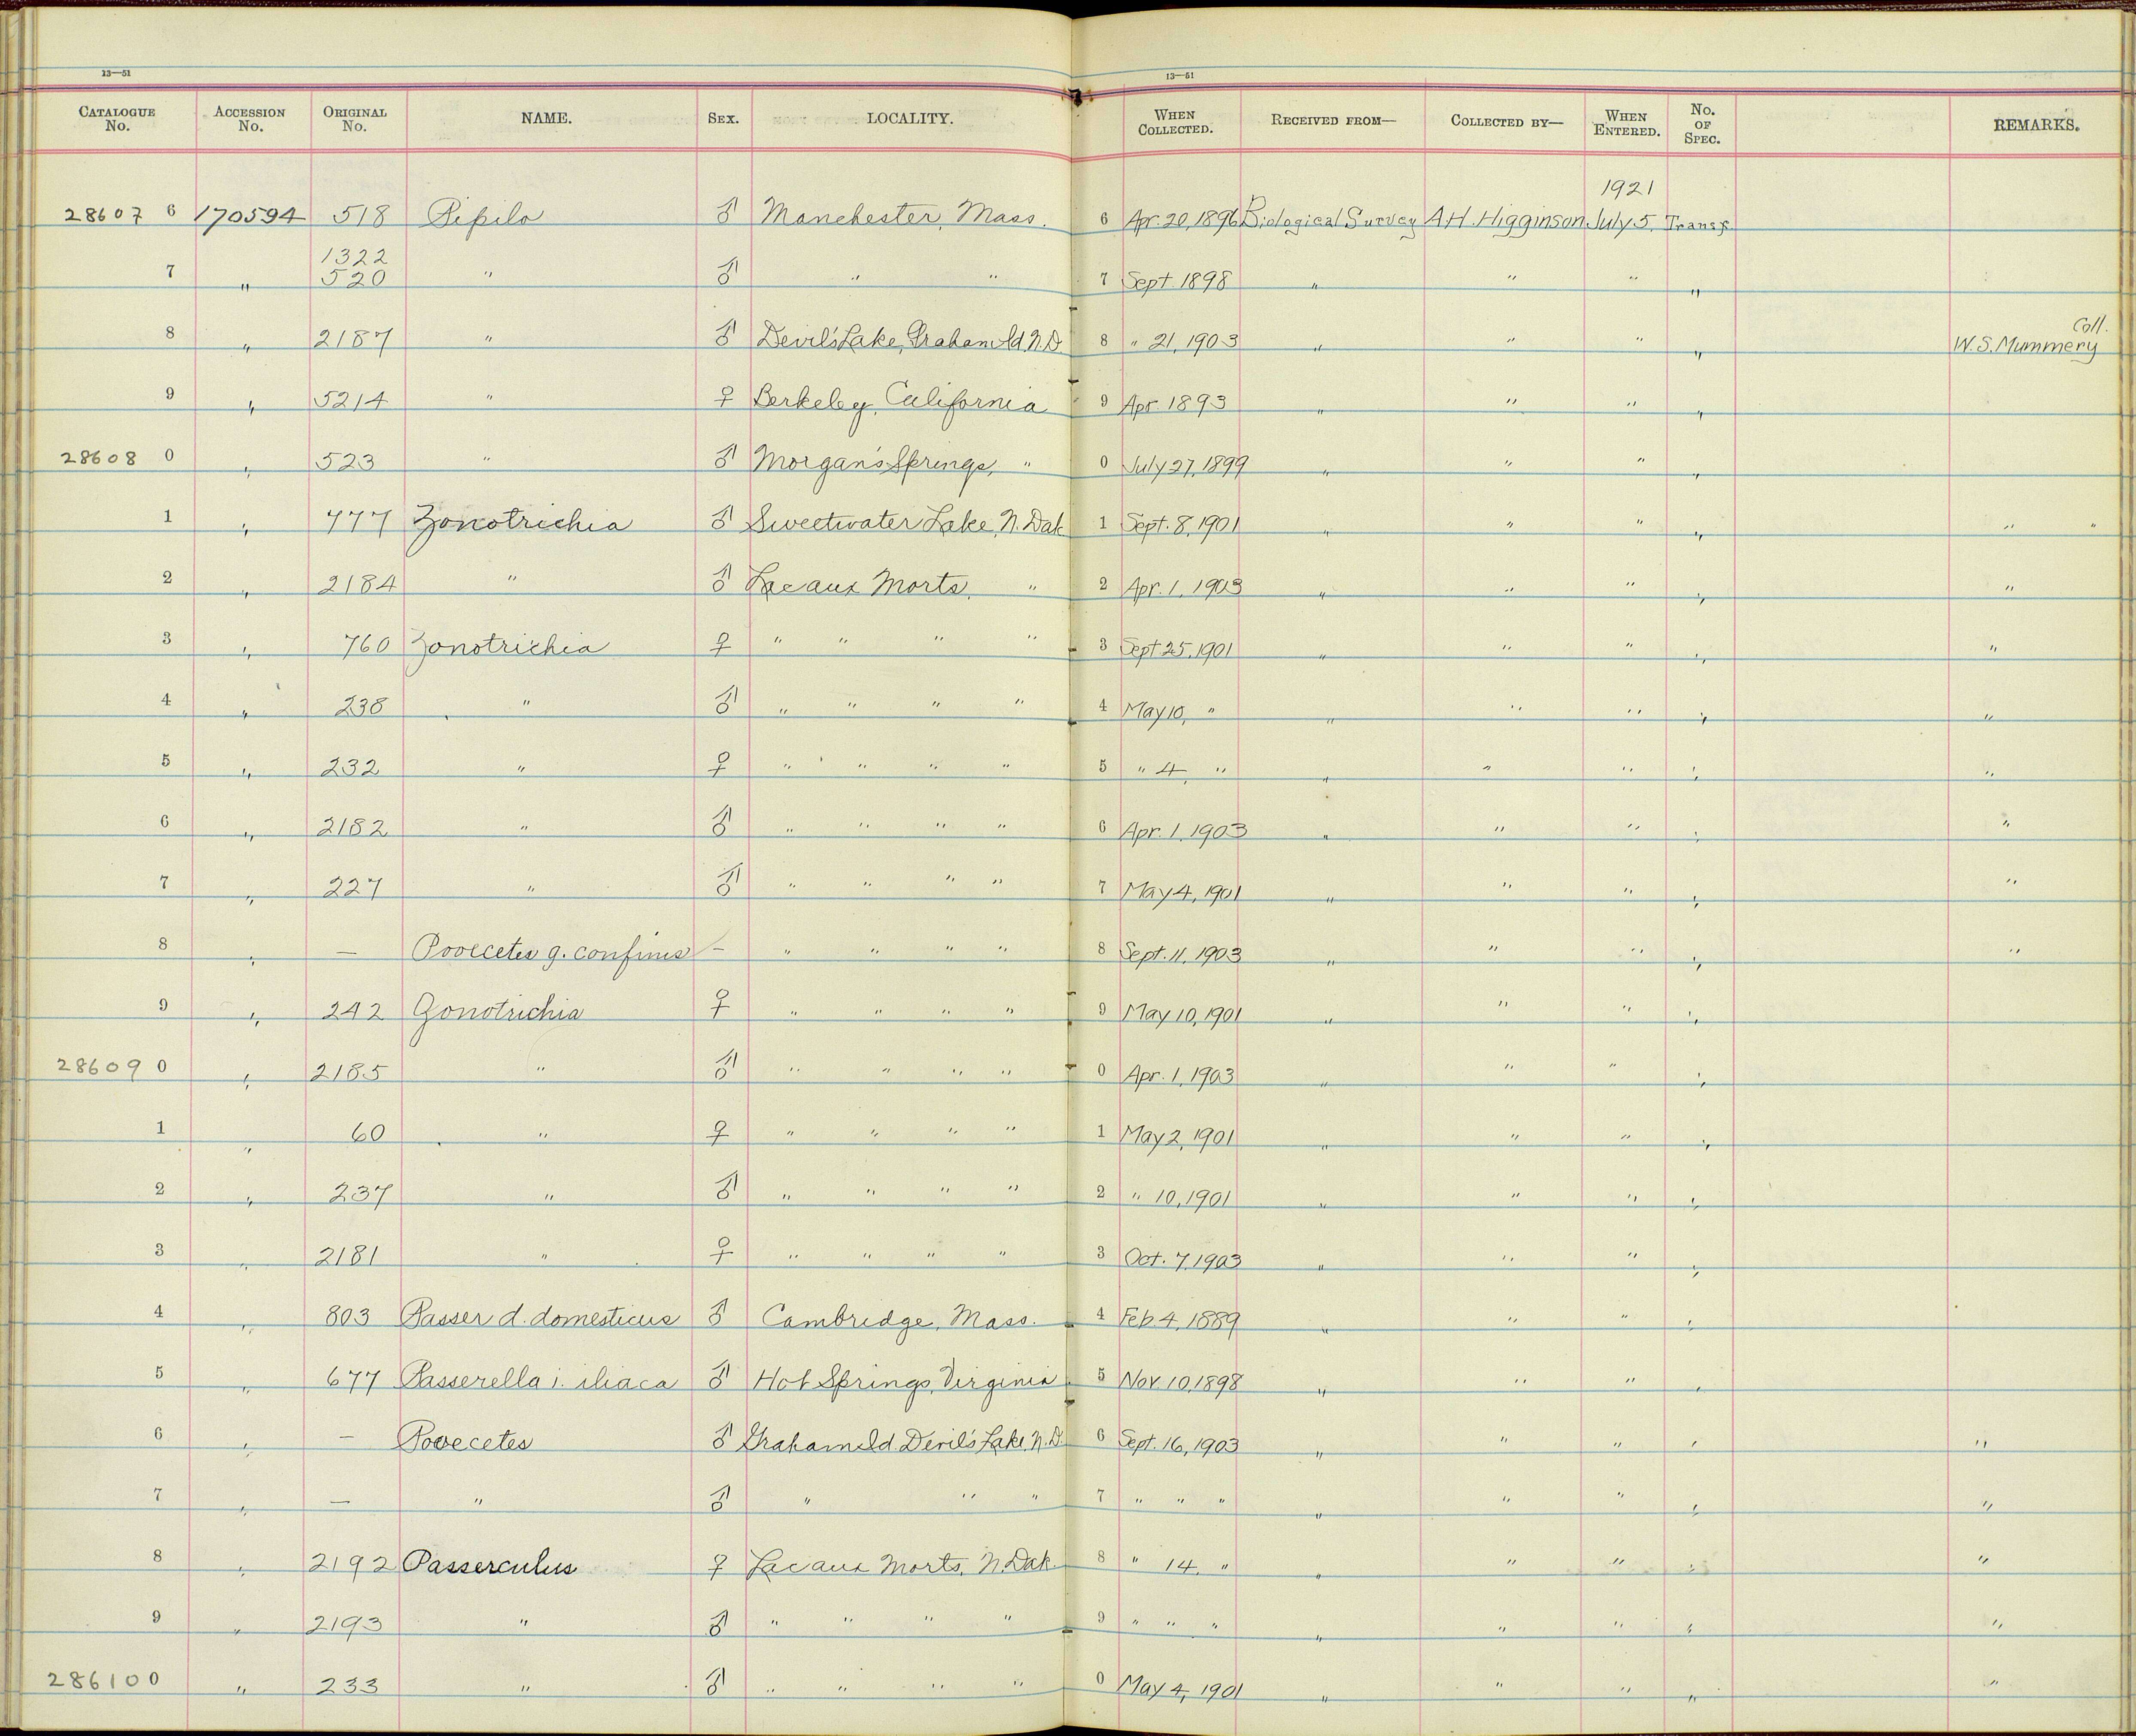 13—51
13—51
CATALOGUE No. ACCESSION No. ORIGINAL No. NAME. SEX. LOCALITY. WHEN COLLECTED. RECEIVED FROM— COLLECTED BY— WHEN ENTERED. No. OF SPEC. REMARKS.
1921
28607 6 170594 518 Pipilo ♂ Manchester, Mass. 6 Apr. 20, 1896 Biological Survey A.H. Higginson July 5. Transf.
1322
7 " 520 " ♂ " " 7 Sept. 1898 " " " "
Coll.
8 " 2187 " ♂ Devil's Lake, Grahams Id, N.D. 8 " 21, 1903 " " " " W.S. Mummery
9 " 5214 " ♀ Berkeley, California 9 Apr. 1893 " " " "
28608 0 " 523 " ♂ Morgan's Springs, " 0 July 27, 1899 " " " "
1 " 777 Zonotrichia ♂ Sweetwater Lake, N. Dak 1 Sept. 8, 1901 " " " " " "
2 " 2184 " ♂ Lac aux Morts, " 2 Apr. 1, 1903 " " " " "
3 " 760 Zonotrichia ♀ " " " " 3 Sept 25, 1901 " " " " "
4 " 238 " ♂ " " " " 4 May 10, " " " " " "
5 " 232 " ♀ " " " " 5 " 4, " " " " " "
6 " 2182 " ♂ " " " " 6 Apr. 1, 1903 " " " " "
7 " 227 " ♂ " " " " 7 May 4, 1901 " " " " "
8 " — Pooecetes g. confinis – " " " " 8 Sept. 11, 1903 " " " " "
9 " 242 Zonotrichia ♀ " " " " 9 May 10, 1901 " " " "
28609 0 " 2185 " ♂ " " " " 0 Apr. 1, 1903 " " " "
1 " 60 " ♀ " " " " 1 May 2, 1901 " " " "
2 " 237 " ♂ " " " " 2 " 10, 1901 " " " "
3 " 2181 " ♀ " " " " 3 Oct. 7, 1903 " " " "
4 " 803 Passer d. domesticus ♂ Cambridge, Mass. 4 Feb. 4, 1889 " " " "
5 " 677 Passerella i. iliaca ♂ Hot Springs, Virginia 5 Nov. 10, 1898 " " " "
6 " — Pooecetes ♂ Grahams Id Devil's Lake, N.D. 6 Sept. 16, 1903 " " " " "
7 " — " ♂ " " " 7 " " " " " " " "
8 " 2192 Passerculus ♀ Lac aux Morts, N. Dak. 8 " 14, " " " " " "
9 " 2193 " ♂ " " " " 9 " " " " " " " "
28610 0 " 233 " ♂ " " " " 0 May 4, 1901 " " " " "